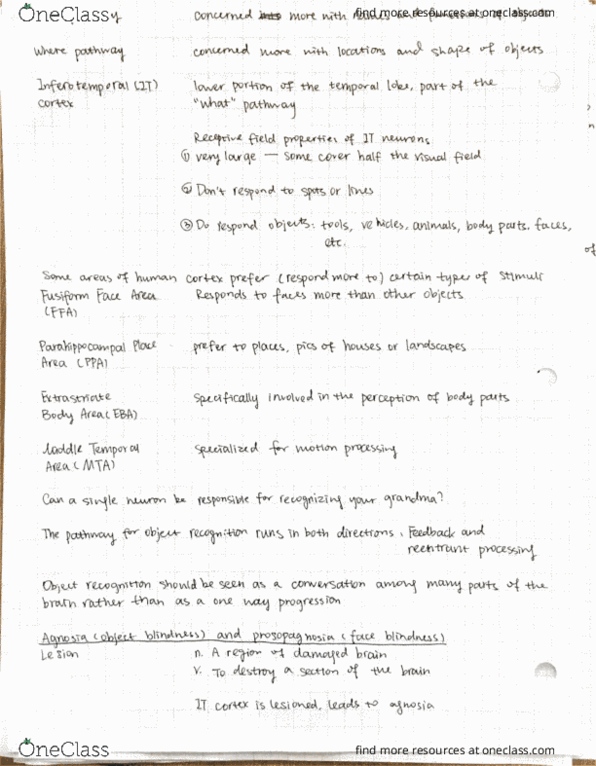 OneClass
find more resources at oneclass.com
concerned more with
where pathway concerned more with locations and shape of objects
Inferotemporal (IT) lower portion of the temporal lobe, part of the
cortex "what" pathway
Receptive field properties of IT neurons
① very large — some cover half the visual field
② Don't respond to spots or lines
③ Do respond objects: tools, vehicles, animals, body parts, faces,
etc.
of
Some areas of human cortex prefer (respond more to) certain types of stimuli
Fusiform Face Area Responds to faces more than other objects
(FFA)
Parahippocampal Place prefer to places, pics of houses or landscapes
Area (PPA)
Extrastriate specifically involved in the perception of body parts
Body Area (EBA)
Temporal specialized for motion processing
Area (MTA)
Can a single neuron be responsible for recognizing your grandma?
The pathway for object recognition runs in both directions. Feedback and
reentrant processing
Object recognition should be seen as a conversation among many parts of the
brain rather than as a one way progression
Agnosia (object blindness) and prosopagnosia (face blindness)
Lesion n. A region of damaged brain
v. To destroy a section of the brain
IT cortex is lesioned, leads to agnosia
OneClass
find more resources at oneclass.com